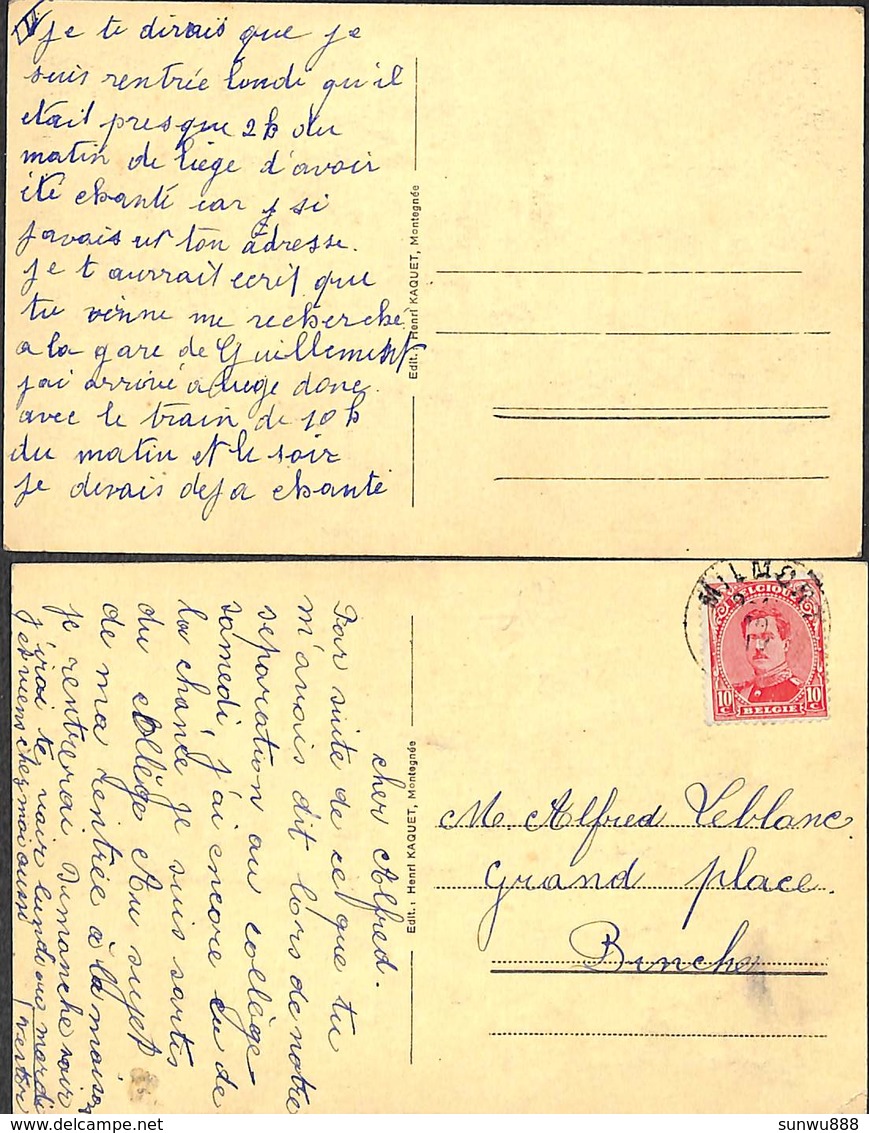 II je te dirais que je
suis rentrée londi qu'il
etait presque 2h du
matin de liège d'avoir
été chanté car si
j'avais ut ton adresse.
je t'aurrait ecrit que
tu vienne me recherché
a la gare de Guillement
j'ai arrivé a liege donc
avec le train de 10 h
du matin et le soir
je devais deja chanté
Edit. : Henri KAQUET, Montegnée
cher Alfred.
Par suite de ce que tu
m'avais dit lors de notre
separation au collège
samedi, j'ai encore eu de
la chance je suis sortis
du collège Au sujet
de ma rentrée à la maison
je rentrerai Dimanche soir
j'irai te voir lundi ou mardi
et viens chez moi aussi
Edit. : Henri KAQUET, Montegnée
MILMORT
BELGIQUE
10 c 10 c
BELGIE
Mr. Alfred Leblanc
Grand place.
Binche
sunwu888